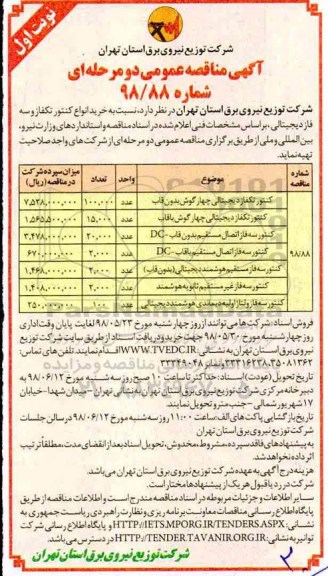 نوبت اول
شرکت توزیع نیروی برق استان تهران
آگهی مناقصه عمومی دو مرحله‌ای
شماره ۹۸/۸۸
شرکت توزیع نیروی برق استان تهران در نظر دارد، نسبت به خرید انواع کنتور تکفاز و سه
فاز دیجیتالی، براساس مشخصات فنی اعلام شده در اسناد مناقصه و استانداردهای وزارت نیرو،
بین المللی و ملی از طریق برگزاری مناقصه عمومی دو مرحله‌ای از شرکت‌های واجد صلاحیت
تهیه نماید.
شماره مناقصه موضوع واحد تعداد میزان سپرده شرکت در مناقصه (ریال)
۹۸/۸۸
کنتور تکفاز دیجیتالی چهار گوش بدون قاب عدد ۱۰۰,۰۰۰ ۷,۵۲۸,۰۰۰,۰۰۰
کنتور تکفاز دیجیتالی چهار گوش با قاب عدد ۱۵,۰۰۰ ۱,۵۶۵,۵۰۰,۰۰۰
کنتور سه فاز اتصال مستقیم بدون قاب - DC عدد ۲۰,۰۰۰ ۳,۴۷۸,۰۰۰,۰۰۰
کنتور سه فاز اتصال مستقیم با قاب - DC عدد ۲,۰۰۰ ۶۷۰,۰۰۰,۰۰۰
کنتور سه فاز مستقیم هوشمند دیجیتالی (بدون قاب) عدد ۲,۰۰۰ ۱,۴۶۸,۰۰۰,۰۰۰
کنتور سه فاز غیر مستقیم ثانویه هوشمند عدد ۲,۰۰۰ ۱,۴۰۸,۰۰۰,۰۰۰
کنتور سه فاز ولتاژ اولیه دیماندی هوشمند دیجیتالی عدد ۱۰۰ ۲۵۰,۰۰۰,۰۰۰
فروش اسناد: شرکت‌ها می توانند از روز چهار شنبه مورخ ۹۸/۰۵/۲۳ لغایت پایان وقت اداری
روز چهارشنبه مورخ ۹۸/۰۵/۳۰ جهت خرید و دریافت اسناد از طریق سایت شرکت توزیع
نیروی برق استان تهران به نشانی: WWW.TVEDC.IR اقدام نمایند. تلفن های تماس:
۳۵۰۸۱۳۶۲-۳۳۱۶۲۳۸ و نمابر: ۳۳۲۴۹۰۴۸
تاریخ تحویل (عودت) اسناد: حداکثر تا ساعت ۱۰ صبح روز سه شنبه مورخ ۹۸/۰۶/۱۲ به
دبیرخانه مرکزی شرکت توزیع نیروی برق استان تهران به نشانی تهران - میدان شهدا - خیابان
۱۷ شهریور شمالی - جنب مترو تحویل نمایند.
تاریخ بازگشایی پاکت های الف ساعت ۱۱:۰۰ روز سه شنبه مورخ ۹۸/۰۶/۱۲ در سالن جلسات
شرکت توزیع نیروی برق استان تهران
به پیشنهادهای فاقد سپرده، مشروط، مخدوش، تحویل اسناد بعد از انقضای مدت، مطلقاً ترتیب
اثر داده نخواهد شد.
هزینه درج آگهی به عهده شرکت توزیع نیروی برق استان تهران می‌باشد.
شرکت در رد یا قبول هر یک از پیشنهادها مختار است.
سایر اطلاعات و جزئیات مربوطه در اسناد مناقصه مندرج است و اطلاعات مناقصه از طریق
پایگاه اطلاع رسانی مناقصات معاونت برنامه ریزی و نظارت راهبردی ریاست جمهوری به
نشانی: HTTP://IETS.MPORG.IR/TENDERS.ASPX و پایگاه اطلاع رسانی شرکت
توانیر به نشانی: HTTP://TENDER.TAVANIR.ORG.IR در دسترس می باشد.
شرکت توزیع نیروی برق استان تهران